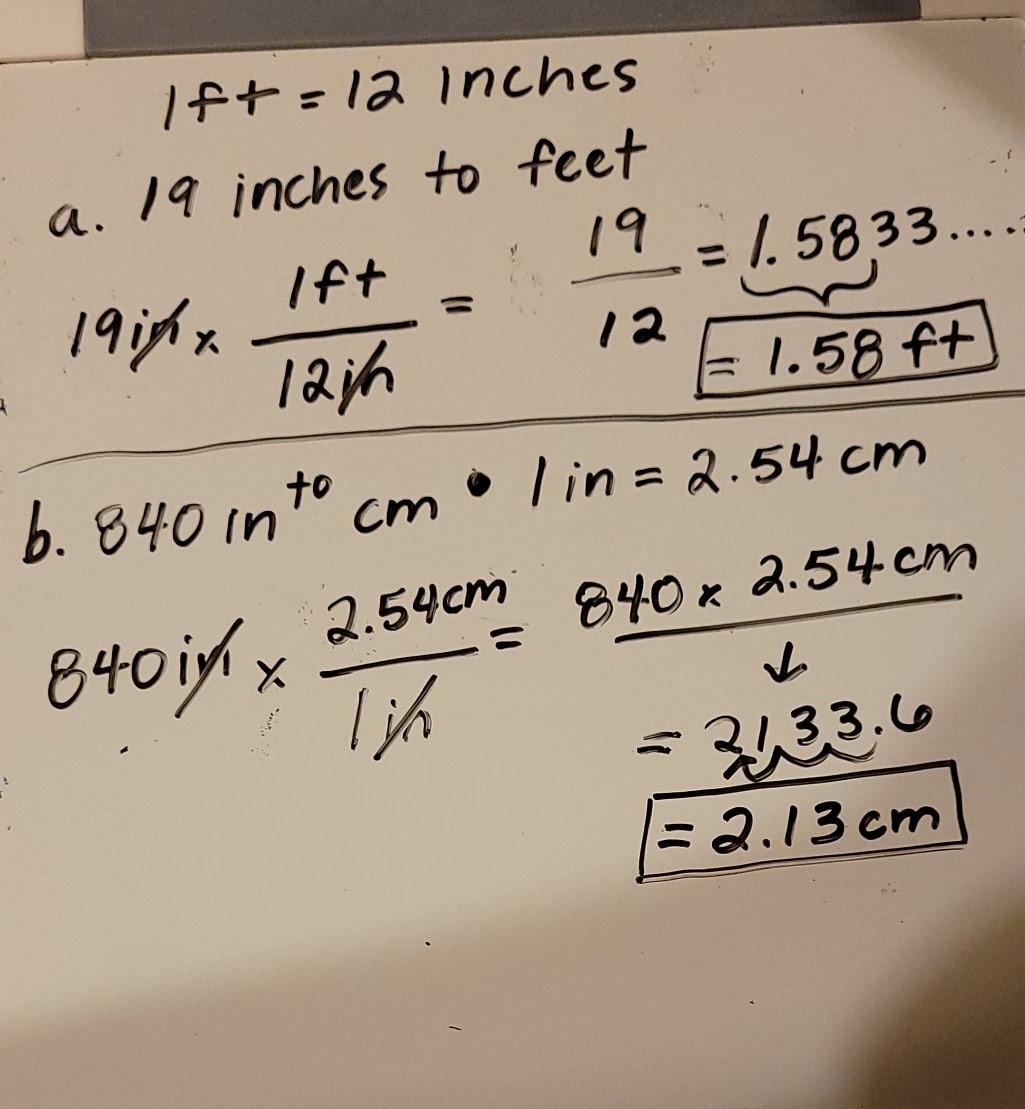 1ft = 12 inches
a. 19 inches to feet
19in x 1ft / 12in = 19 / 12 = 1.5833.....
= 1.58 ft
b. 840 in to cm • 1 in = 2.54 cm
840in x 2.54cm / 1in = 840 x 2.54cm
↓
= 2133.6
= 2.13 cm